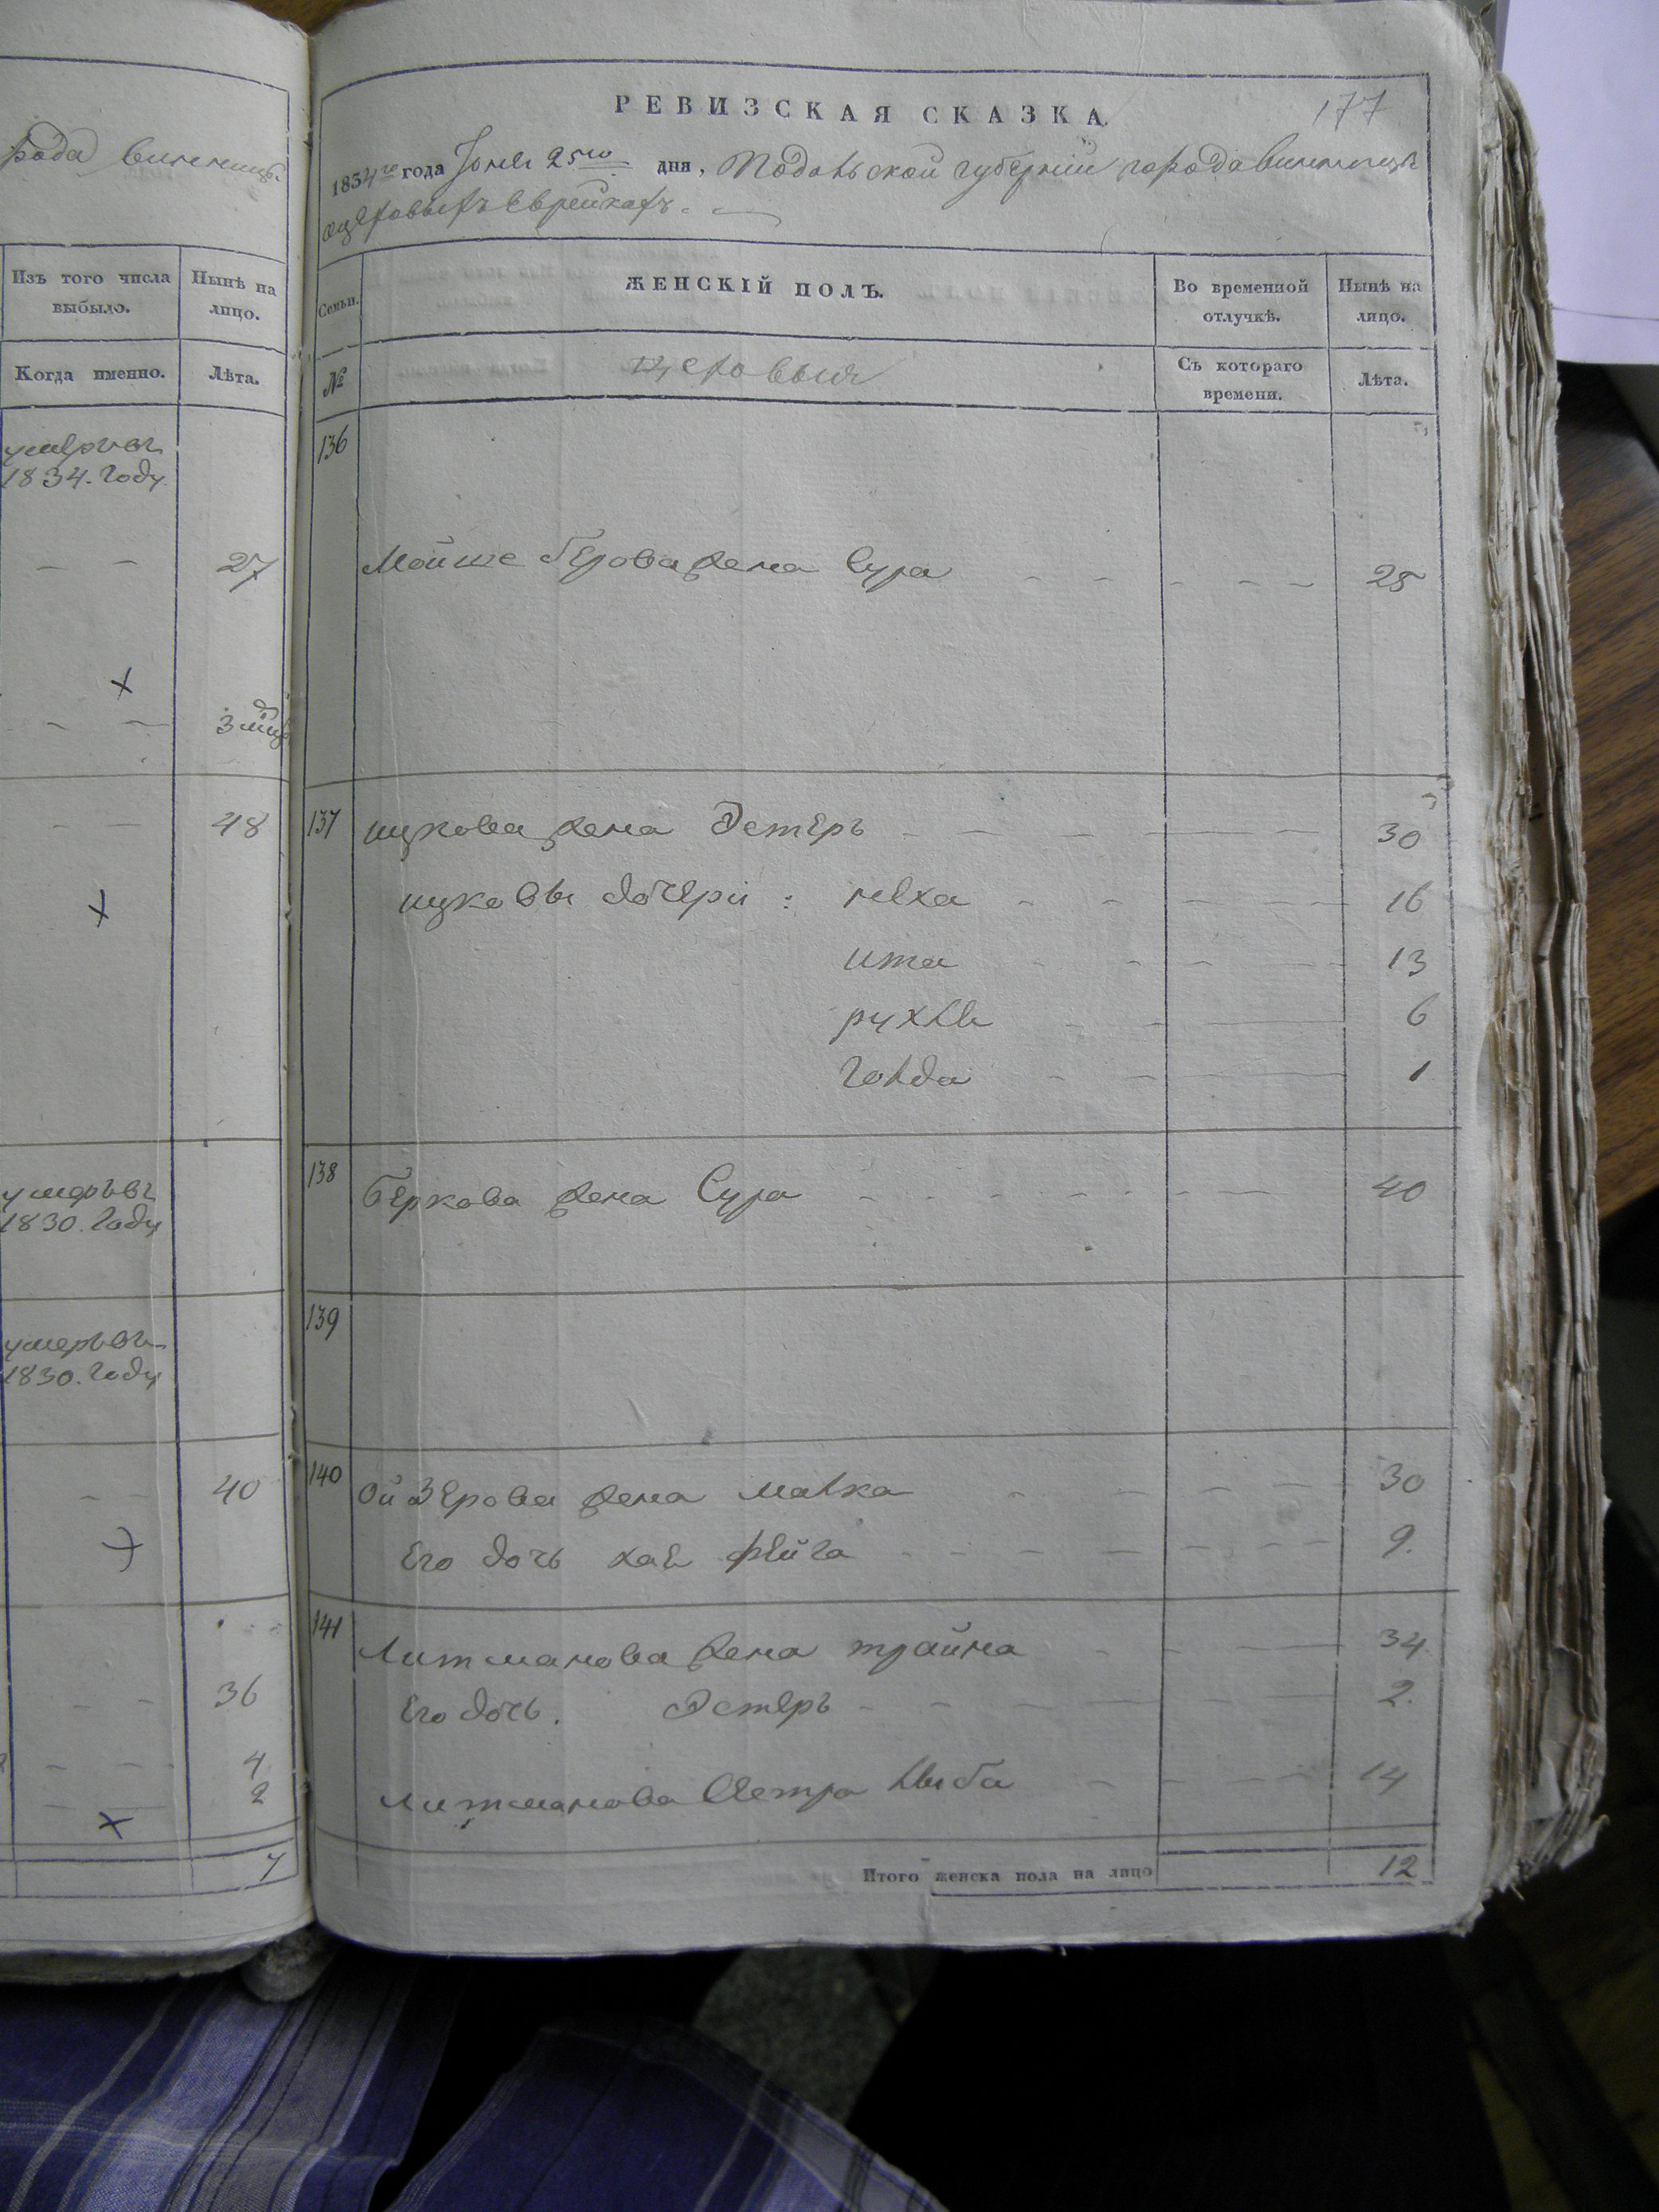 рода винницы
Изъ того числа выбыло.
Нынѣ на лицо.
Когда именно.
Лѣта.
умеръ въ
1834. году
27
3 мца
48
умеръ въ
1830. году
умеръ въ
1830. году
40
36
4
2
7
РЕВИЗСКАЯ СКАЗКА.
177
1834го года Іюня 25го дня, Подольской губерніи города винницы
еврейкахъ.
Семьи.
ЖЕНСКІЙ ПОЛЪ.
Во временной отлучкѣ.
Нынѣ на лицо.
№
Съ котораго времени.
Лѣта.
136
Мойше Берова жена Сура 25
137 ицкова жена Эстеръ 30
ицковы дочери: 16
ита 13
рухля 6
голда 1
138
Беркова жена Сура 40
139
140 Ойзерова жена малка 30
Его дочь хая фейга 9.
141
Литманова жена трайна 34
Его дочь. Эстеръ 2.
литманова Сестра 14
Итого женска пола на лицо 12